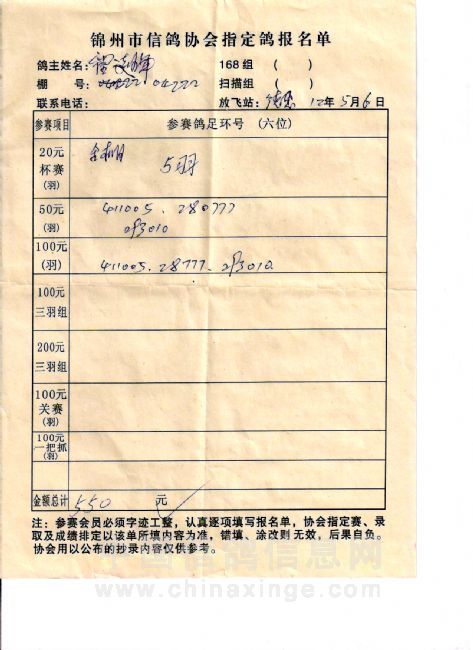 锦州市信鸽协会指定鸽报名单
鸽主姓名: 168组 ( )
棚 号: 04222 扫描组 ( )
联系电话: 放飞站: 12年5月6日
参赛项目 参赛鸽足环号 (六位)
20元
杯赛
(羽)
5羽
50元
(羽)
411005.280777
013010
100元
(羽)
411005.28777.
100元
三羽组
200元
三羽组
100元
关赛
(羽)
100元
一把抓
(羽)
金额总计 550 元
注:参赛会员必须字迹工整,认真逐项填写报名单,协会指定赛、录
取及成绩排定以该单所填内容为准,错填、涂改则无效,后果自负。
协会用以公布的抄录内容仅供参考。
中国信鸽信息网
www.chinaxinge.com